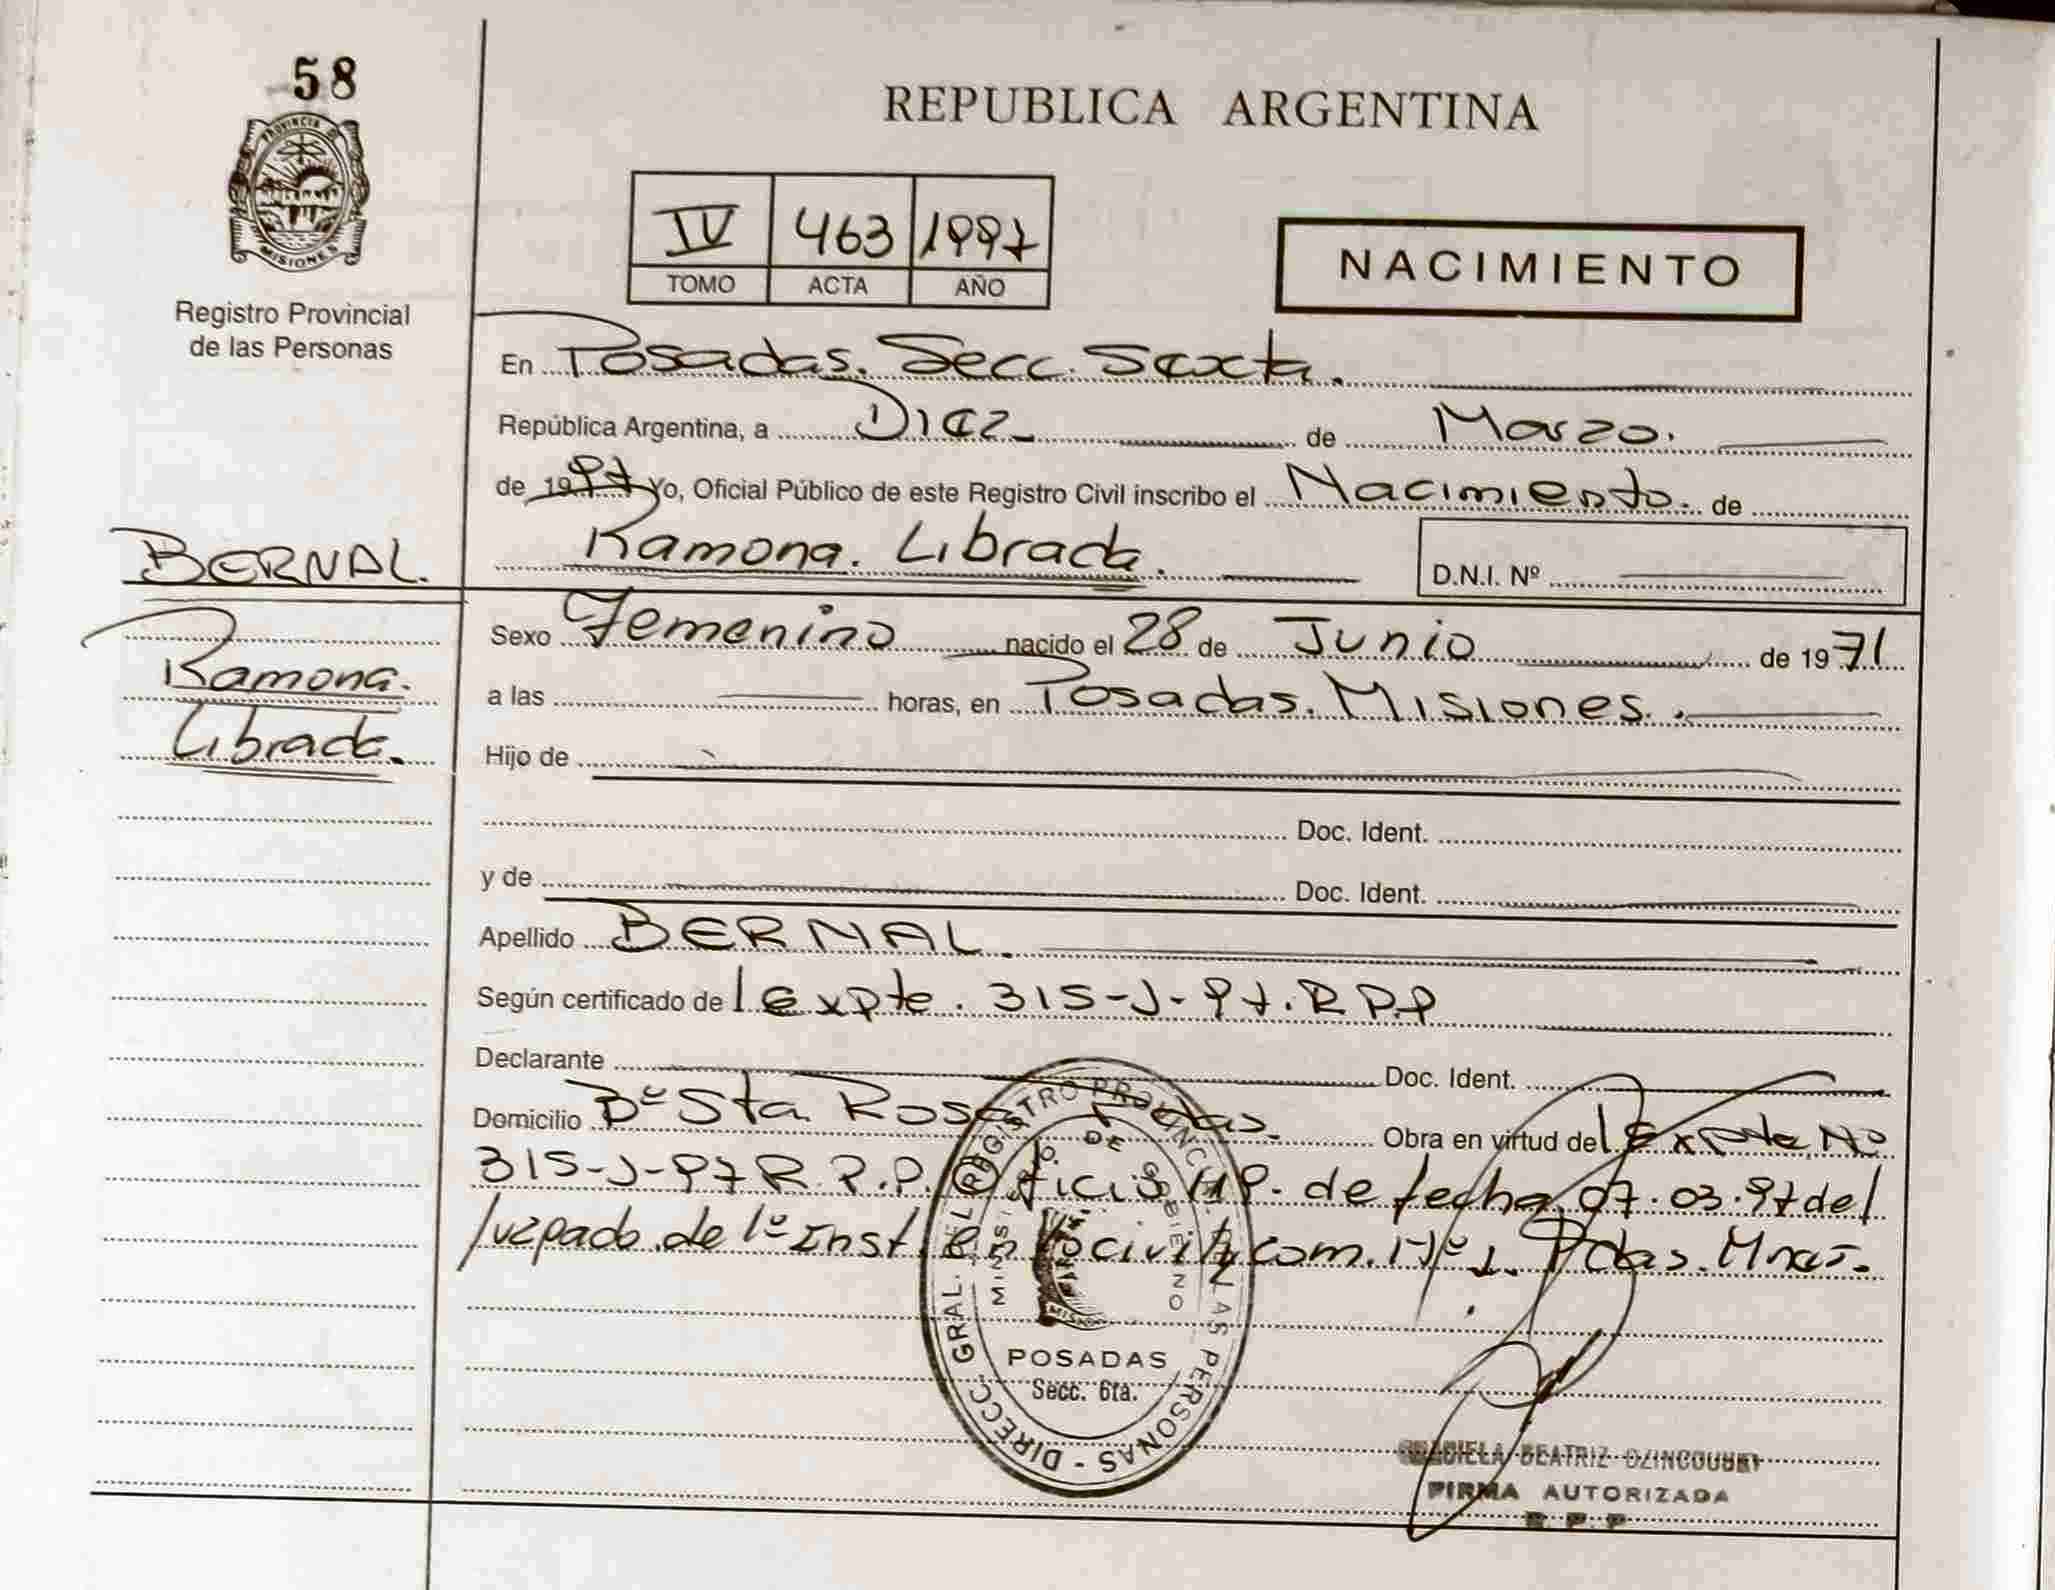 58
PROVINCIA DE
MISIONES
Registro Provincial
de las Personas
REPUBLICA ARGENTINA
IV 463 1997
TOMO ACTA AÑO
NACIMIENTO
En Posadas. Secc. Sexta.
República Argentina, a Diez de Marzo.
de 1997 Yo, Oficial Público de este Registro Civil inscribo el Nacimiento. de
Ramona. Librada.
D.N.I. Nº
BERNAL.
Ramona.
Librada.
Sexo Femenino nacido el 28 de Junio de 1971
a las horas, en Posadas. Misiones.
Hijo de
Doc. Ident.
y de Doc. Ident.
Apellido BERNAL.
Según certificado de l expte. 315-J-97. R.P.P
Declarante Doc. Ident.
Domicilio Bº Sta Rosa Pdas. Obra en virtud del Expte. Nº
315-J-97 R.P.P. Oficio de fecha 07.03.97 del
Juzgado de 1º Inst. en lo civil y com. Nº 1. Pdas. Mnes.
DIRECC. GRAL. DEL REGISTRO PROVINCIAL DE LAS PERSONAS
MINISTRO. DE GOBIERNO
POSADAS
Secc. 6ta.
BEATRIZ
FIRMA AUTORIZADA
R. P. P